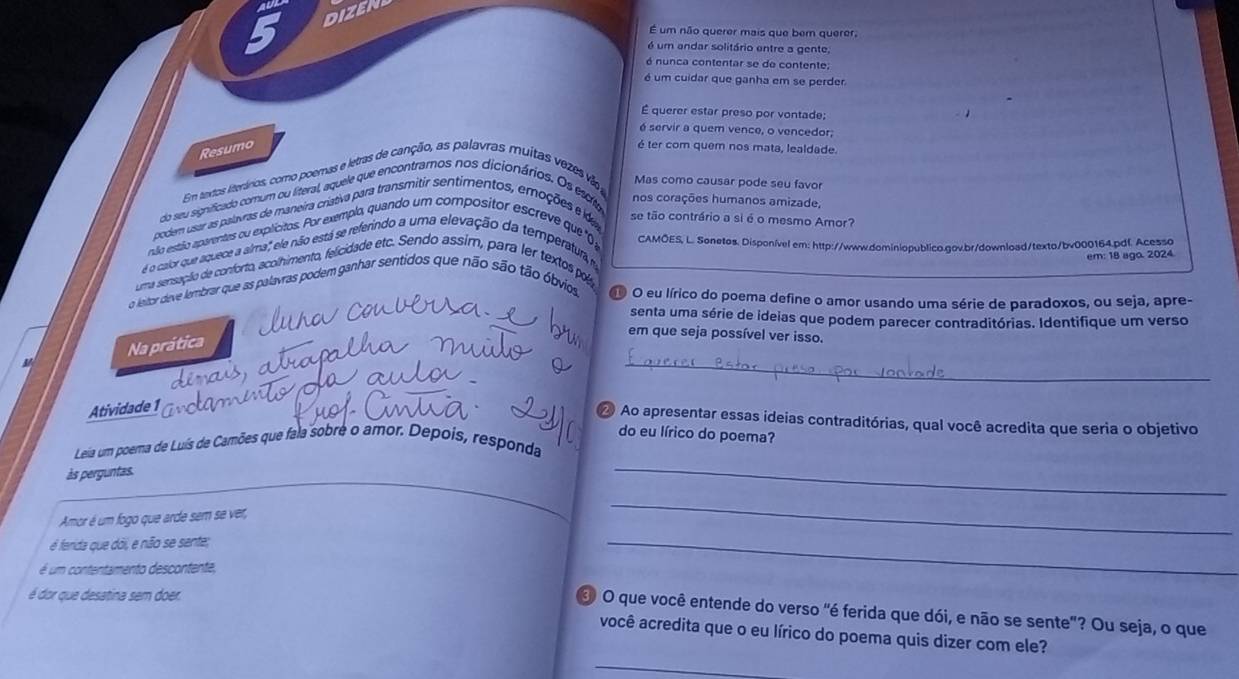 AULA
5
DIZEN
Resumo
Em textos literários, como poemas e letras de canção, as palavras muitas vezes vão
do seu significado comum ou literal, aquele que encontramos nos dicionários. Os
podem usar as palavras de maneira criativa para transmitir sentimentos, emoções e
não estão aparentes ou explícitos. Por exemplo, quando um compositor escreve que "O
é o calor que aquece a alma", ele não está se referindo a uma elevação da temperatura,
uma sensação de conforto, acolhimento, felicidade etc. Sendo assim, para ler textos
o leitor deve lembrar que as palavras podem ganhar sentidos que não são tão óbvios.
Na prática
aluna conversa. e
demais, atrapalha muito o
andamento da aula.
Prof. Cintia.
Atividade 1
Leia um poema de Luís de Camões que fala sobre o amor. Depois, responda
às perguntas.
Amor é um fogo que arde sem se ver,
é ferida que dói, e não se sente;
é um contentamento descontente,
é dor que desatina sem doer.
É um não querer mais que bem querer;
é um andar solitário entre a gente;
é nunca contentar se de contente;
é um cuidar que ganha em se perder.
É querer estar preso por vontade;
é servir a quem vence, o vencedor;
é ter com quem nos mata, lealdade.
Mas como causar pode seu favor
nos corações humanos amizade,
se tão contrário a si é o mesmo Amor?
CAMÕES, L. Sonetos. Disponível em: http://www.dominiopublico.gov.br/download/texto/bv000164.pdf. Acesso
em: 18 ago. 2024.
1 O eu lírico do poema define o amor usando uma série de paradoxos, ou seja, apre-
senta uma série de ideias que podem parecer contraditórias. Identifique um verso
em que seja possível ver isso.
É querer estar preso por vontade
2 Ao apresentar essas ideias contraditórias, qual você acredita que seria o objetivo
do eu lírico do poema?
3 O que você entende do verso "é ferida que dói, e não se sente"? Ou seja, o que
você acredita que o eu lírico do poema quis dizer com ele?